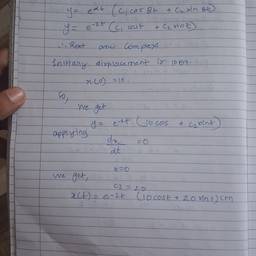 y = e^αt (C₁ cos βt + C₂ sin βt)
y = e^-2t (C₁ cost + C₂ sint)
∴ Root are Complex
Initially displacement is 10 cm
x(0) = 10
So,
we get
y = e^-2t (10 cos + C₂ sint)
applying
dx/dt = 0
x = 0
we get,
C₂ = 20
x(t) = e^-2t (10 cost + 20 sint) cm